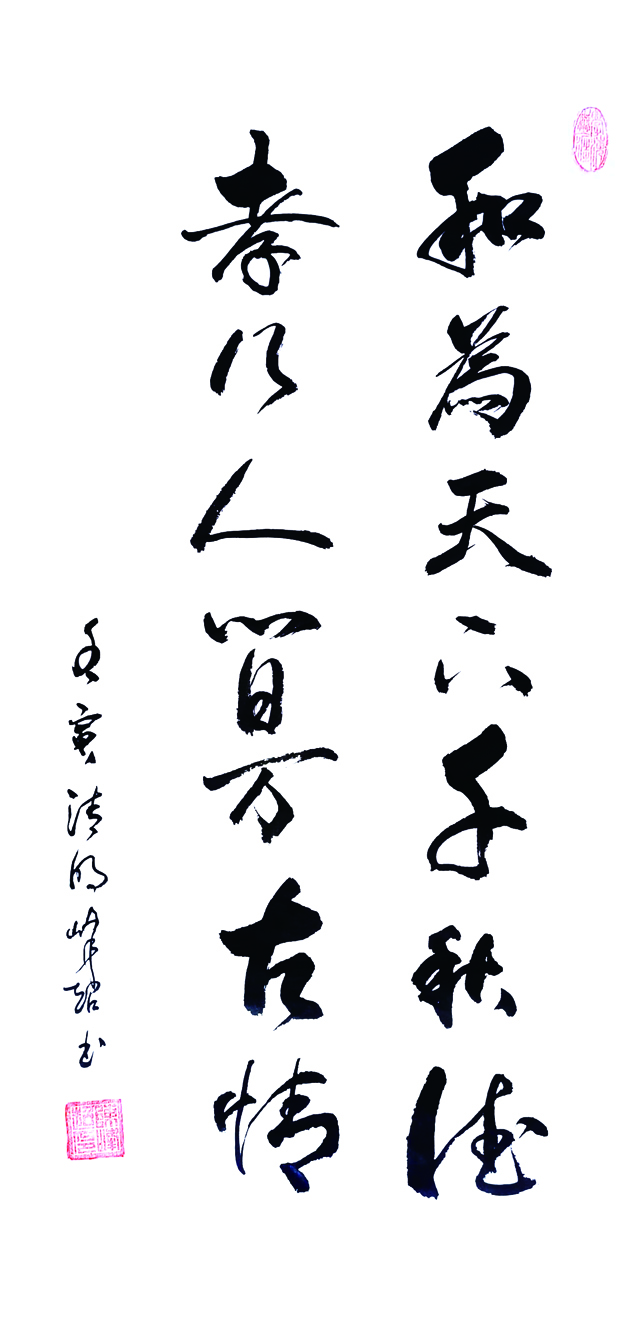 和為天下千秋德
孝乃人間万古情
壬寅清明峰書